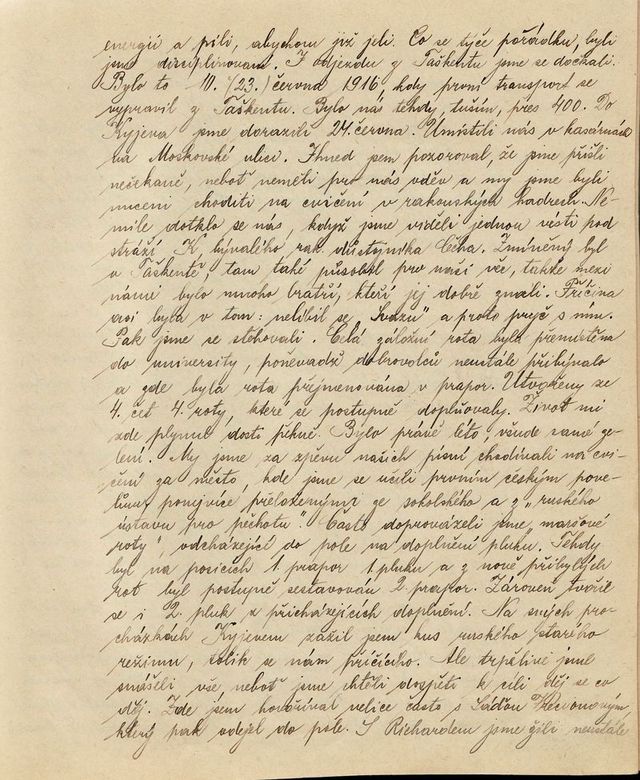 energií a pílí, abychom již jeli. Co se týče pořádku, byli
jsme disciplinovaní. I odjezdu z Taškentu jsme se dočkali.
Bylo to 10./(23.) června 1916, kdy první transport se
vypravil z Taškentu. Bylo nás tehdy, tuším, přes 400. Do
Kyjeva jsme dorazili 24. června. Umístili nás v kasárnách
na Moskovské ulici. Ihned jsem pozoroval, že jsme přišli
nečekaně, neboť neměli pro nás oděv a my jsme byli
nuceni choditi na cvičení v rakouských hadrech. Ne-
mile dotklo se nás, když jsme viděli jednou vésti pod
stráží K. bývalého rak. důstojníka Čecha. Zmíněný byl
v Taškentě, tam také působil pro naši věc, takže mezi
námi bylo mnoho bratří, kteří jej dobře znali. Příčina
asi byla v tom: nelíbil se a proto pryč s ním.
Pak jsme se stěhovali. Celá záložní rota byla přemístěna
do university, poněvadž dobrovolců neustále přibývalo
a zde byla rota přejmenována v prapor. Utvořeny ze
4. čet 4. roty, které se postupně doplňovaly. Život mi
zde plynul dosti pěkně. Bylo právě léto, všude samé ze-
lení. My jsme za zpěvu našich písní chodívali na cvi-
čení za město, kde jsme se učili prvním českým pove-
lům, ponejvíce přeloženým ze sokolského a z „ruského
ústavu pro pěchotu". Často doprovázeli jsme „maršové
roty", odcházející do pole na doplnění pluku. Tehdy
byl na posicích 1. prapor 1. pluku a z nově přibylých
rot byl postupně sestavován 2. prapor. Zároveň tvořil
se i 2. pluk z přicházejících doplnění. Na svých pro-
cházkách Kyjevem zažil jsem kus ruského starého
režimu, tolik se nám příčícího. Ale trpělivě jsme
snášeli vše, neboť jsme chtěli dospěti k cíli děj se co
děj. Zde jsem hovoříval velice často s
který pak odejel do pole. S Richardem jsme žili neustále